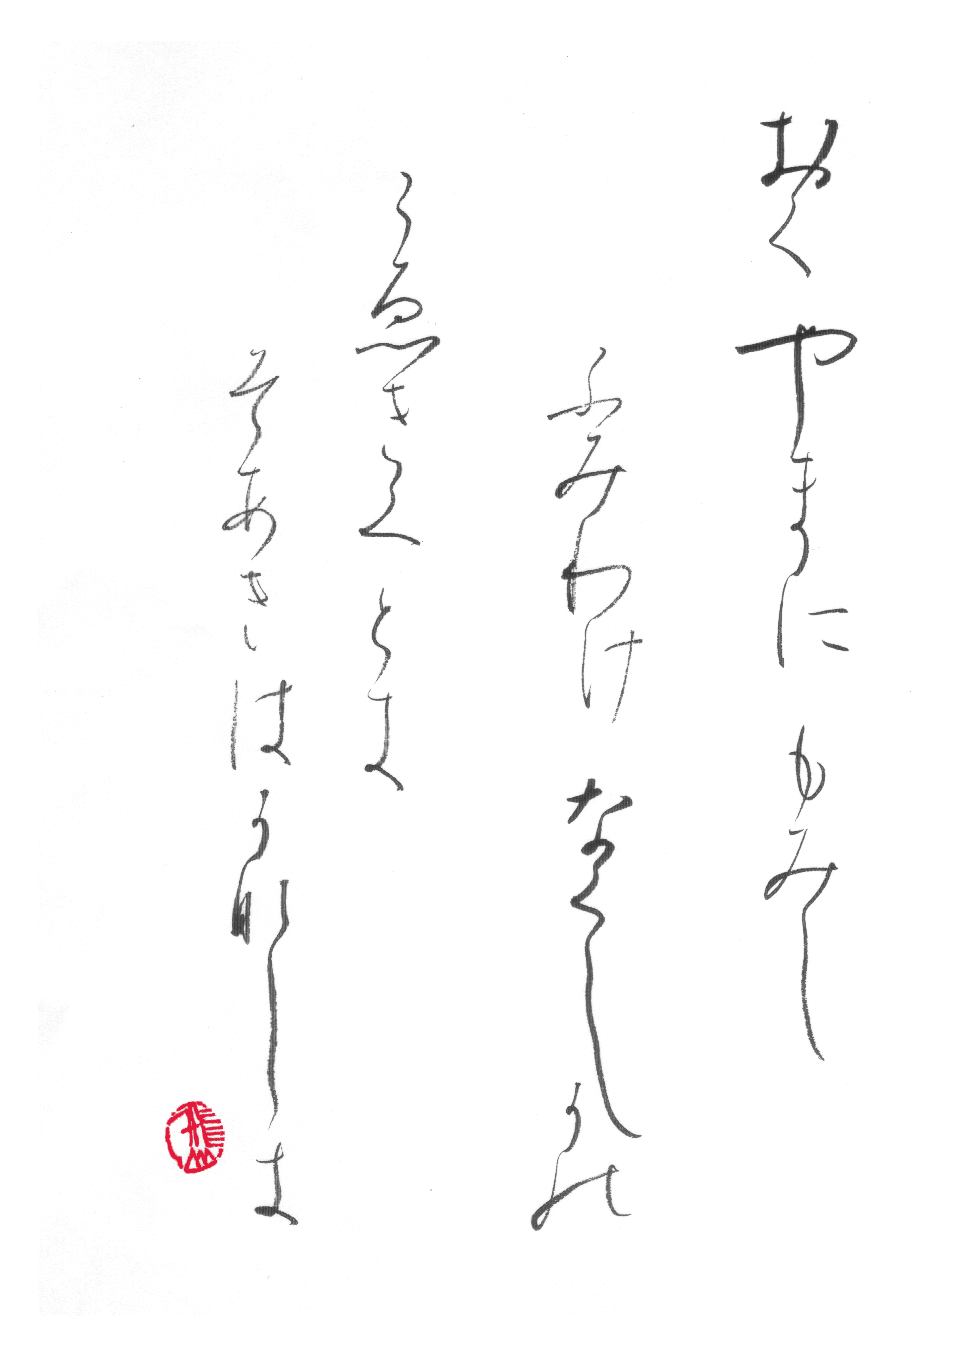 おくやまにもみし
ふみわけなくしかの
こゑきくとき
そあきはかなしき